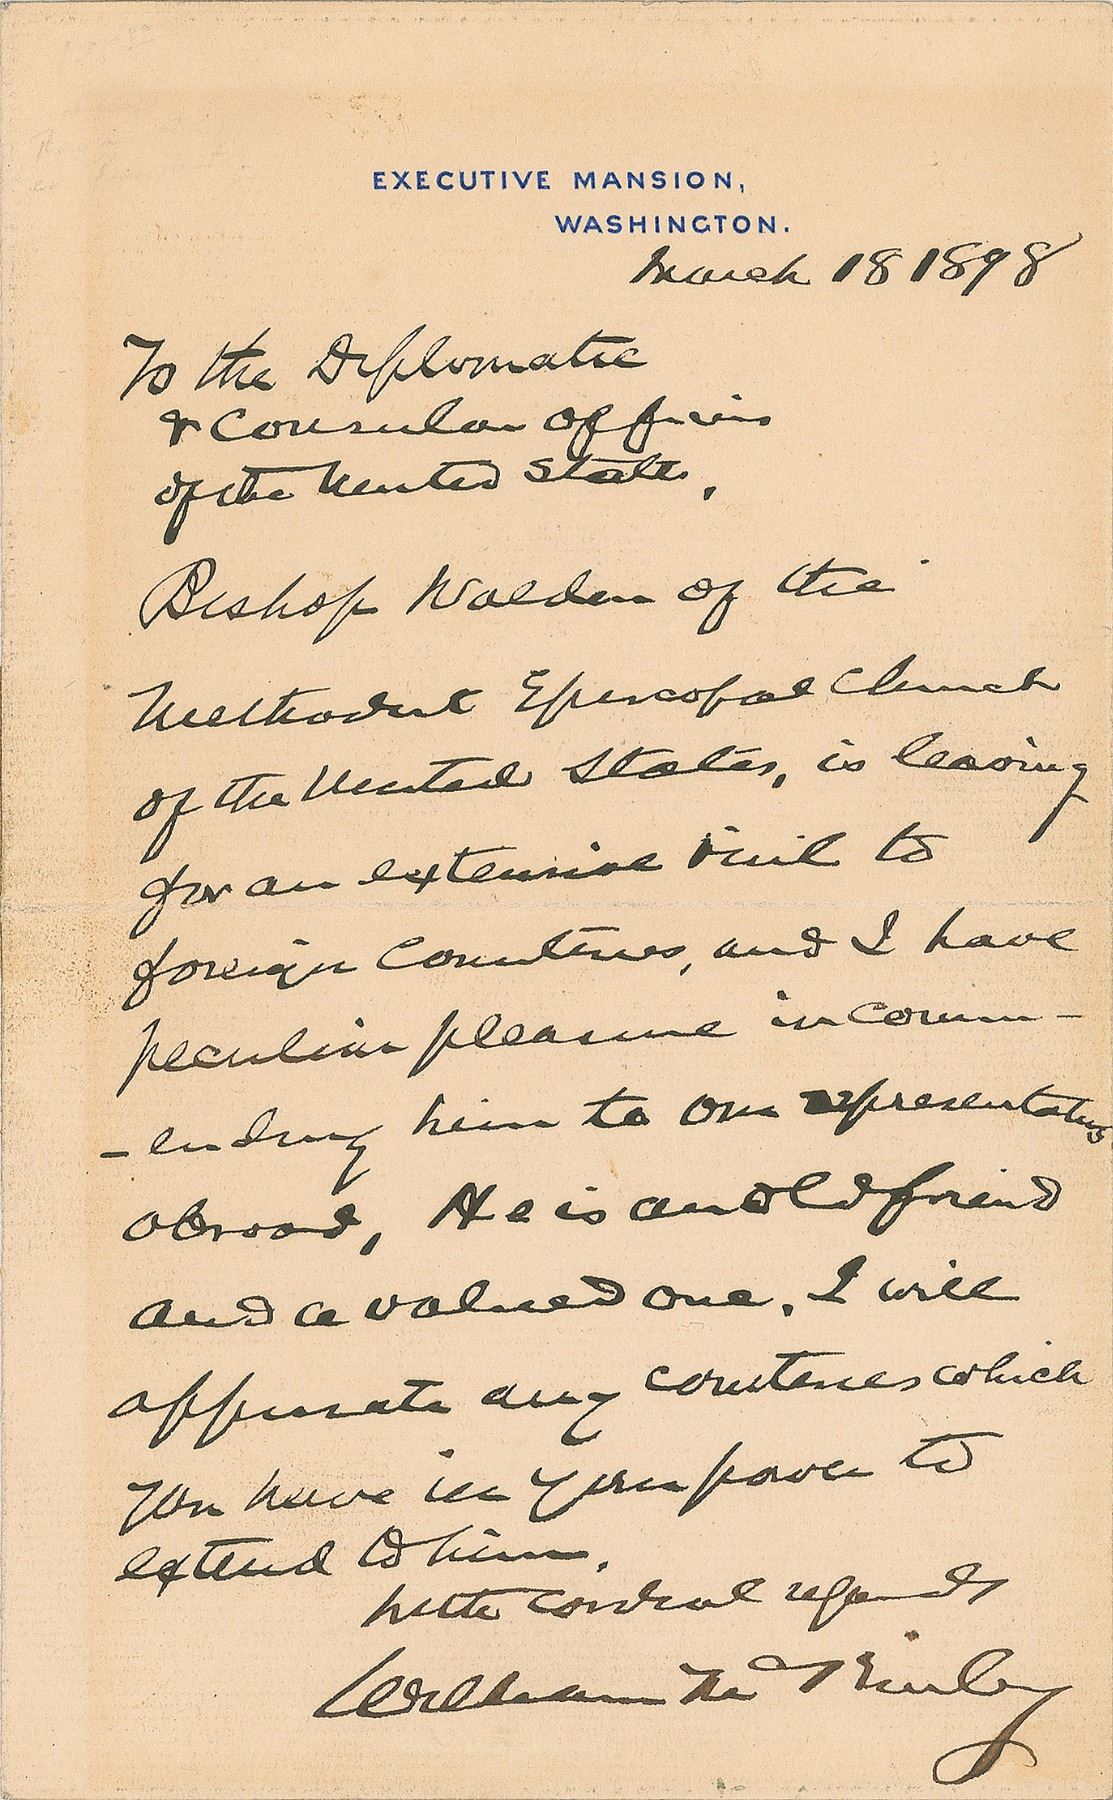 EXECUTIVE MANSION,
WASHINGTON.
March 18 1898
To the Diplomatic
& Consular officers
of the United States,
Bishop Walden of the
Methodist Episcopal Church
of the United States, is leaving
for an extensive visit to
foreign countries, and I have
peculiar pleasure in comm-
-ending him to our representatives
abroad, He is an old friend
and a valued one. I will
appreciate any courtesies which
you have in your power to
extend to him.
With cordial regards
William McKinley